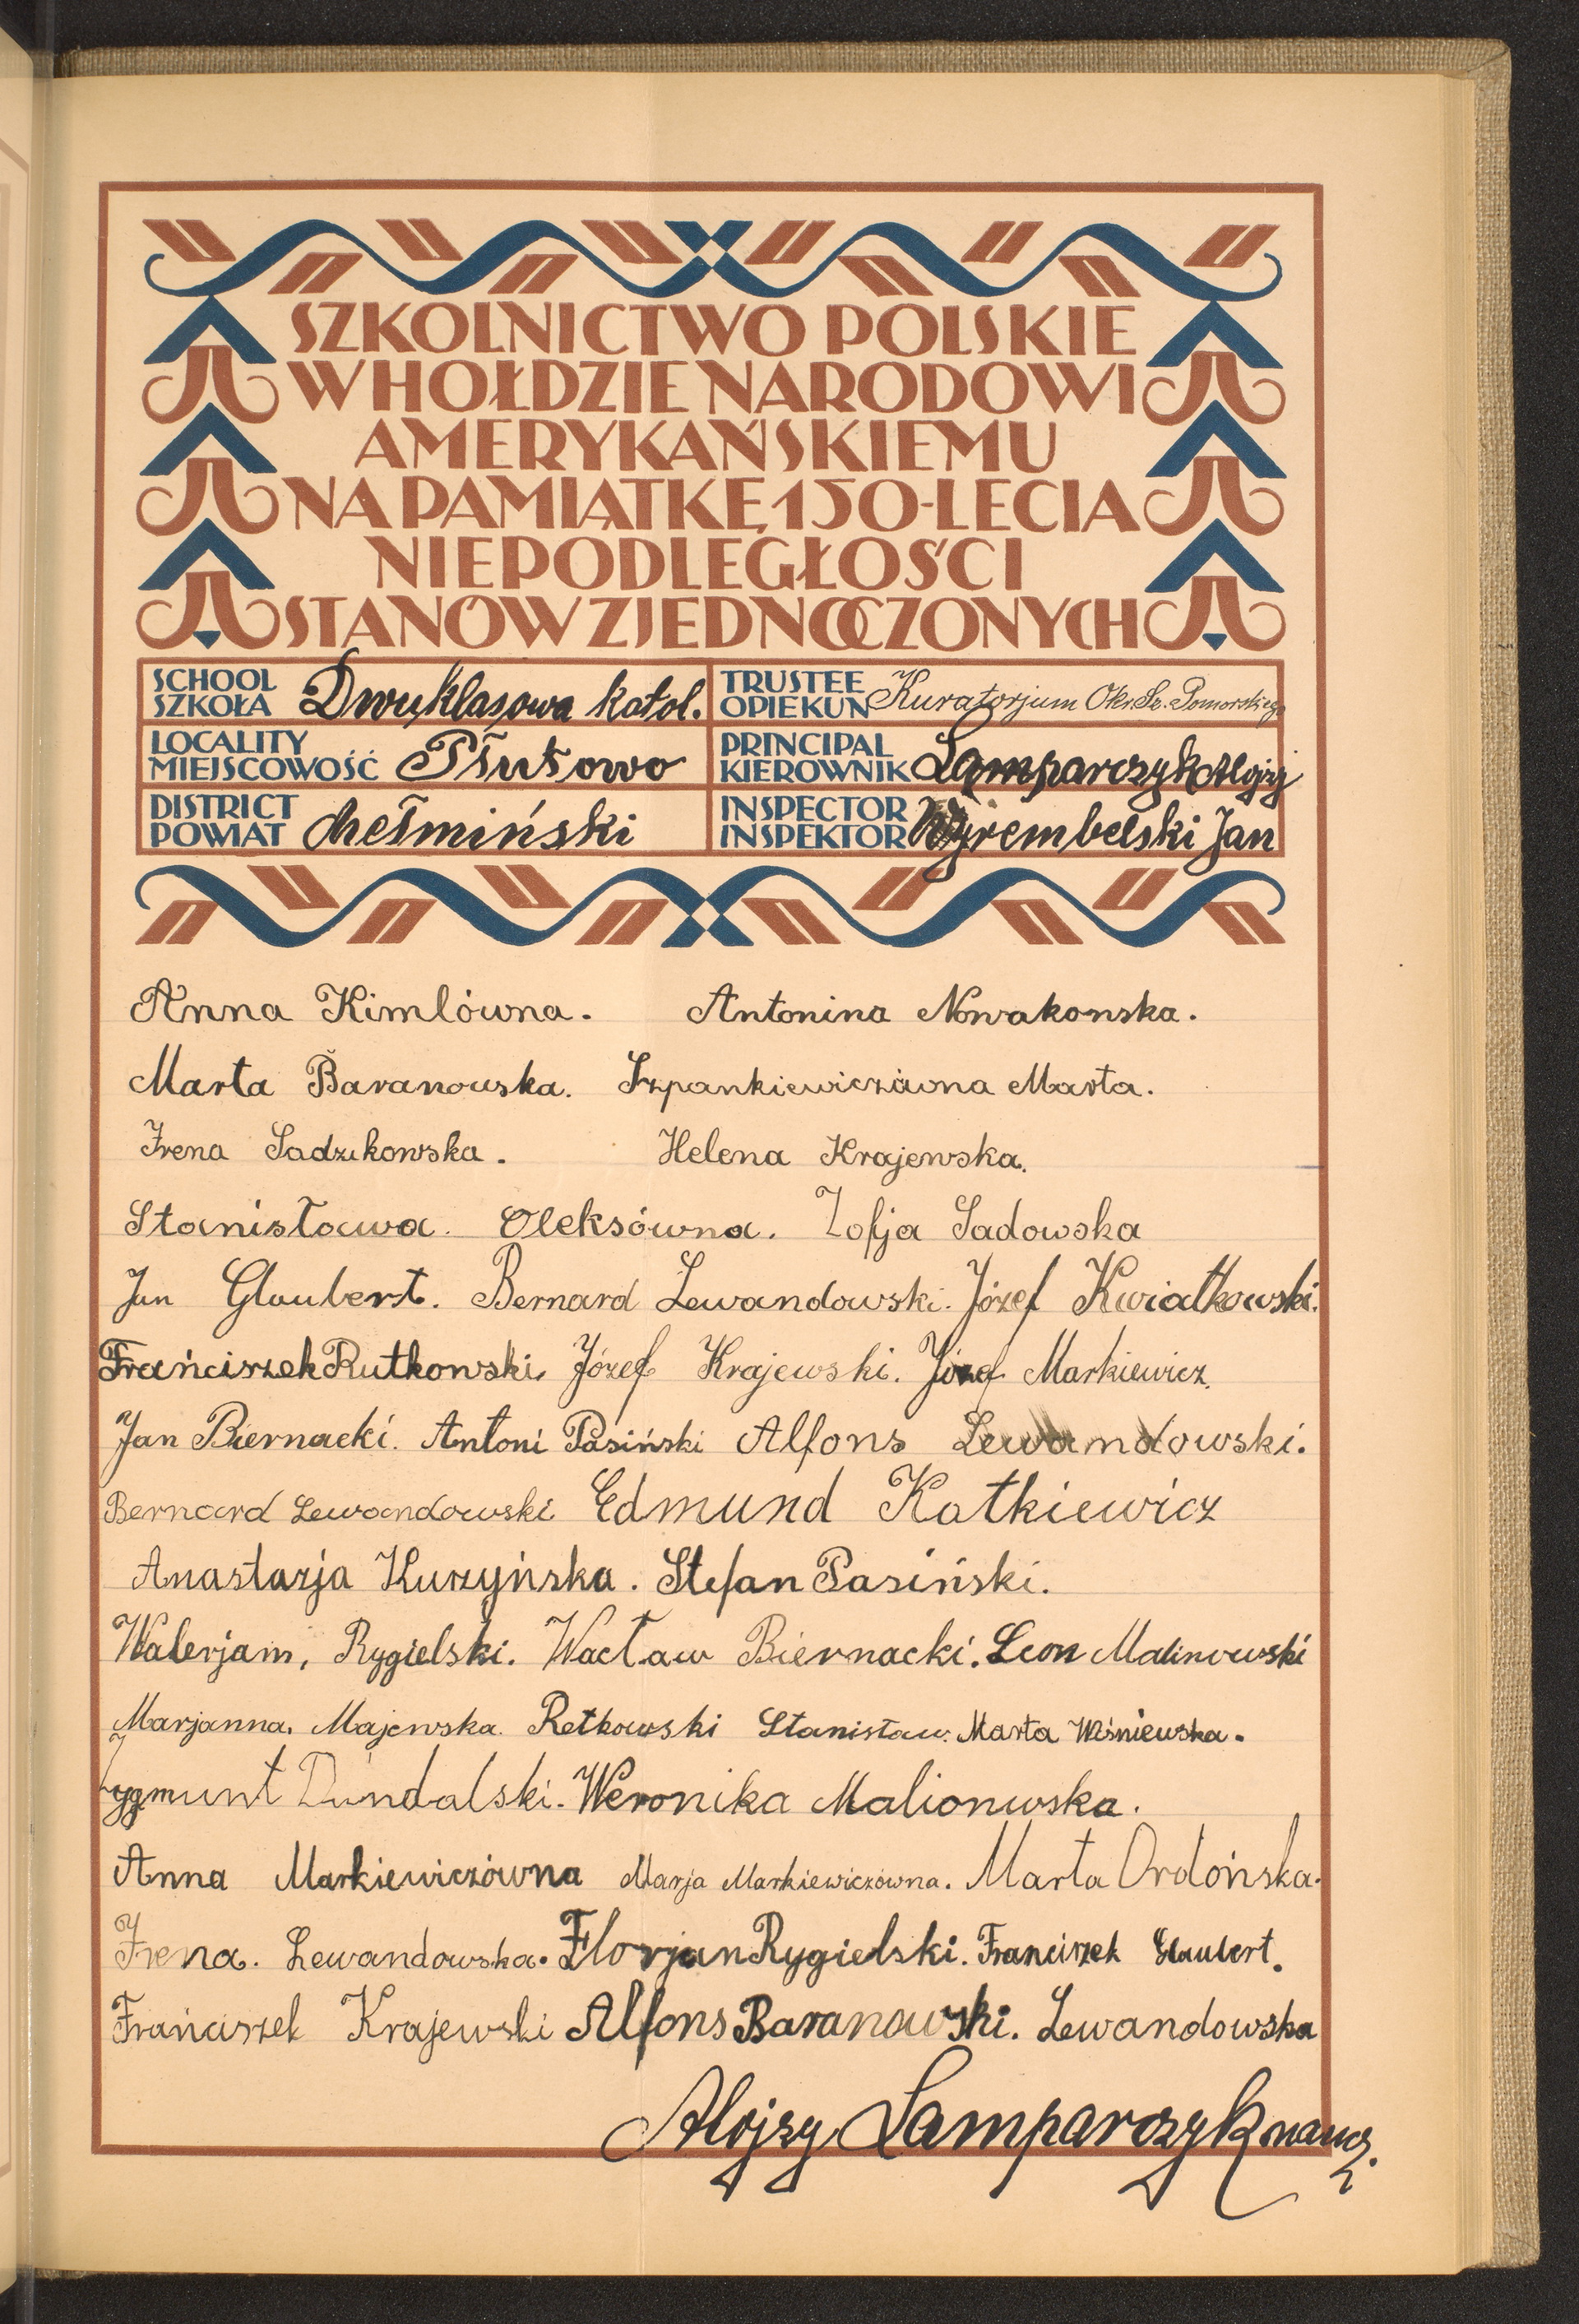 SZKOLNICTWO POLSKIE
W HOŁDZIE NARODOWI
AMERYKAŃSKIEMU
NA PAMIĄTKĘ 150-LECIA
NIEPODLEGŁOŚCI
STANÓW ZJEDNOCZONYCH
SCHOOL SZKOŁA Dwuklasowa katol. TRUSTEE OPIEKUN Kuratorjum Okr. Sz. Pomorskiego
LOCALITY MIEJSCOWOŚĆ Płutowo PRINCIPAL KIEROWNIK Lamparczyk Alojzy
DISTRICT POWIAT chełmiński INSPECTOR INSPEKTOR Wyrembelski Jan
Anna Kimlówna. Antonina Nowakonska.
Marta Baranowska. Szpankiewiczówna Marta.
Irena Sadzikowska. Helena Krajewska.
Stanisława. Oleksówna. Zofja Sadowska
Jan Glaubert. Bernard Lewandowski. Józef Kwiatkowski.
Frańciszek Rutkowski. Józef Krajewski. Józef Markiewicz.
Jan Biernacki. Antoni Pasiński Alfons Lewandowski.
Bernard Lewandowski Edmund Katkiewicz
Anastazja Kurzyńska. Stefan Pasiński.
Walerjam, Rygielski. Wacław Biernacki. Leon Malinowski
Marjanna. Majewska. Retkowski Stanisław. Marta Wiśniewska.
Zygmunt Dundalski. Weronika Malionwska.
Anna Markiewiczówna Marja Markiewiczówna. Marta Ordońska.
Irena. Lewandowska. Florjan Rygielski. Franciszek Glaubert.
Frańciszek Krajewski Alfons Baranowski. Lewandowska
Alojzy Lamparczyk naucz.